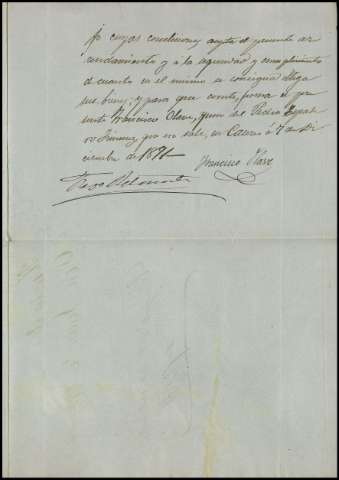 cuyas condiciones acepta el presente ar
rendamiento y a la seguridad y cumplimiento
de cuanto en el mismo se consigna obliga
sus bienes; y para que conste, firma el pre
sente Francisco Olave, y de Pedro
Jimenez que no sabe, en á 7 de Di
ciembre de 1891
Francisco Olave